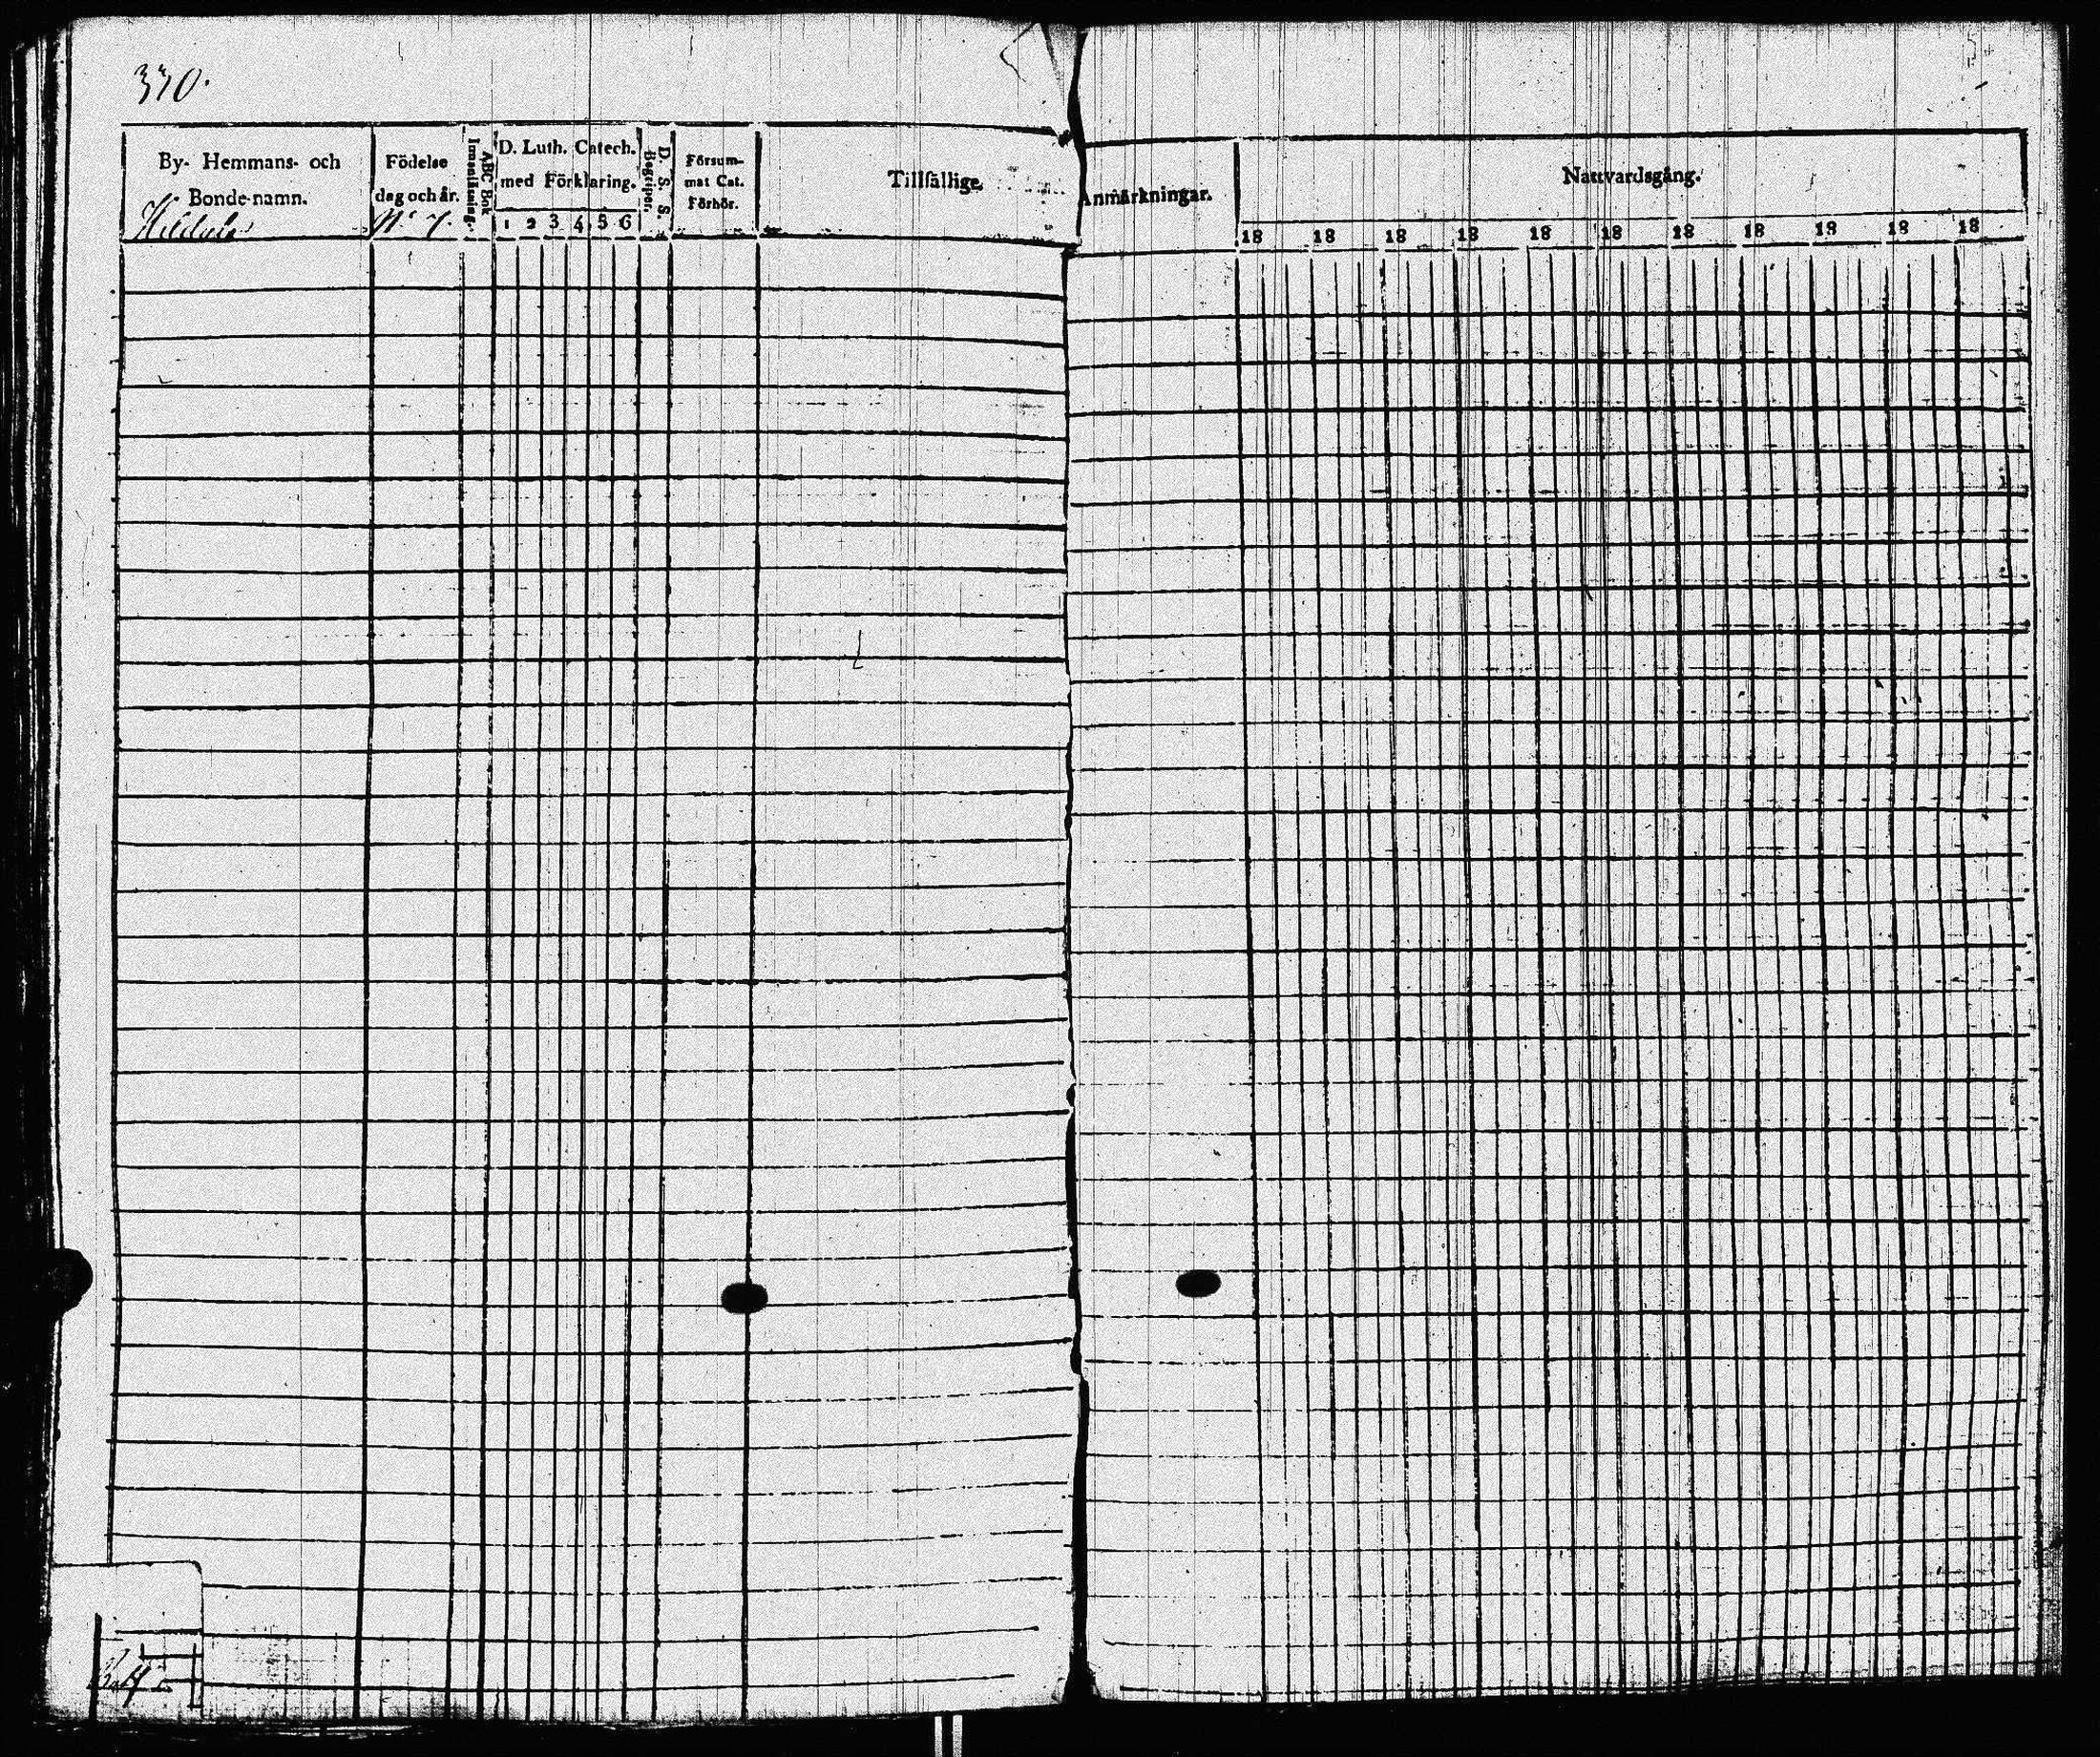 330.
By- Hemmans- och
Bonde-namn.
Födelse
dag och år.
No 7.
ABC Bok
Innanläsning.
D. Luth. Catech.
med Förklaring.
1 2 3 4 5 6
D. S. S.
Begriper.
Försum-
mat Cat.
Förhör.
Tillfällige
Anmärkningar.
Nattvardsgång.
18 18 18 18 18 18 18 18 18 18 18